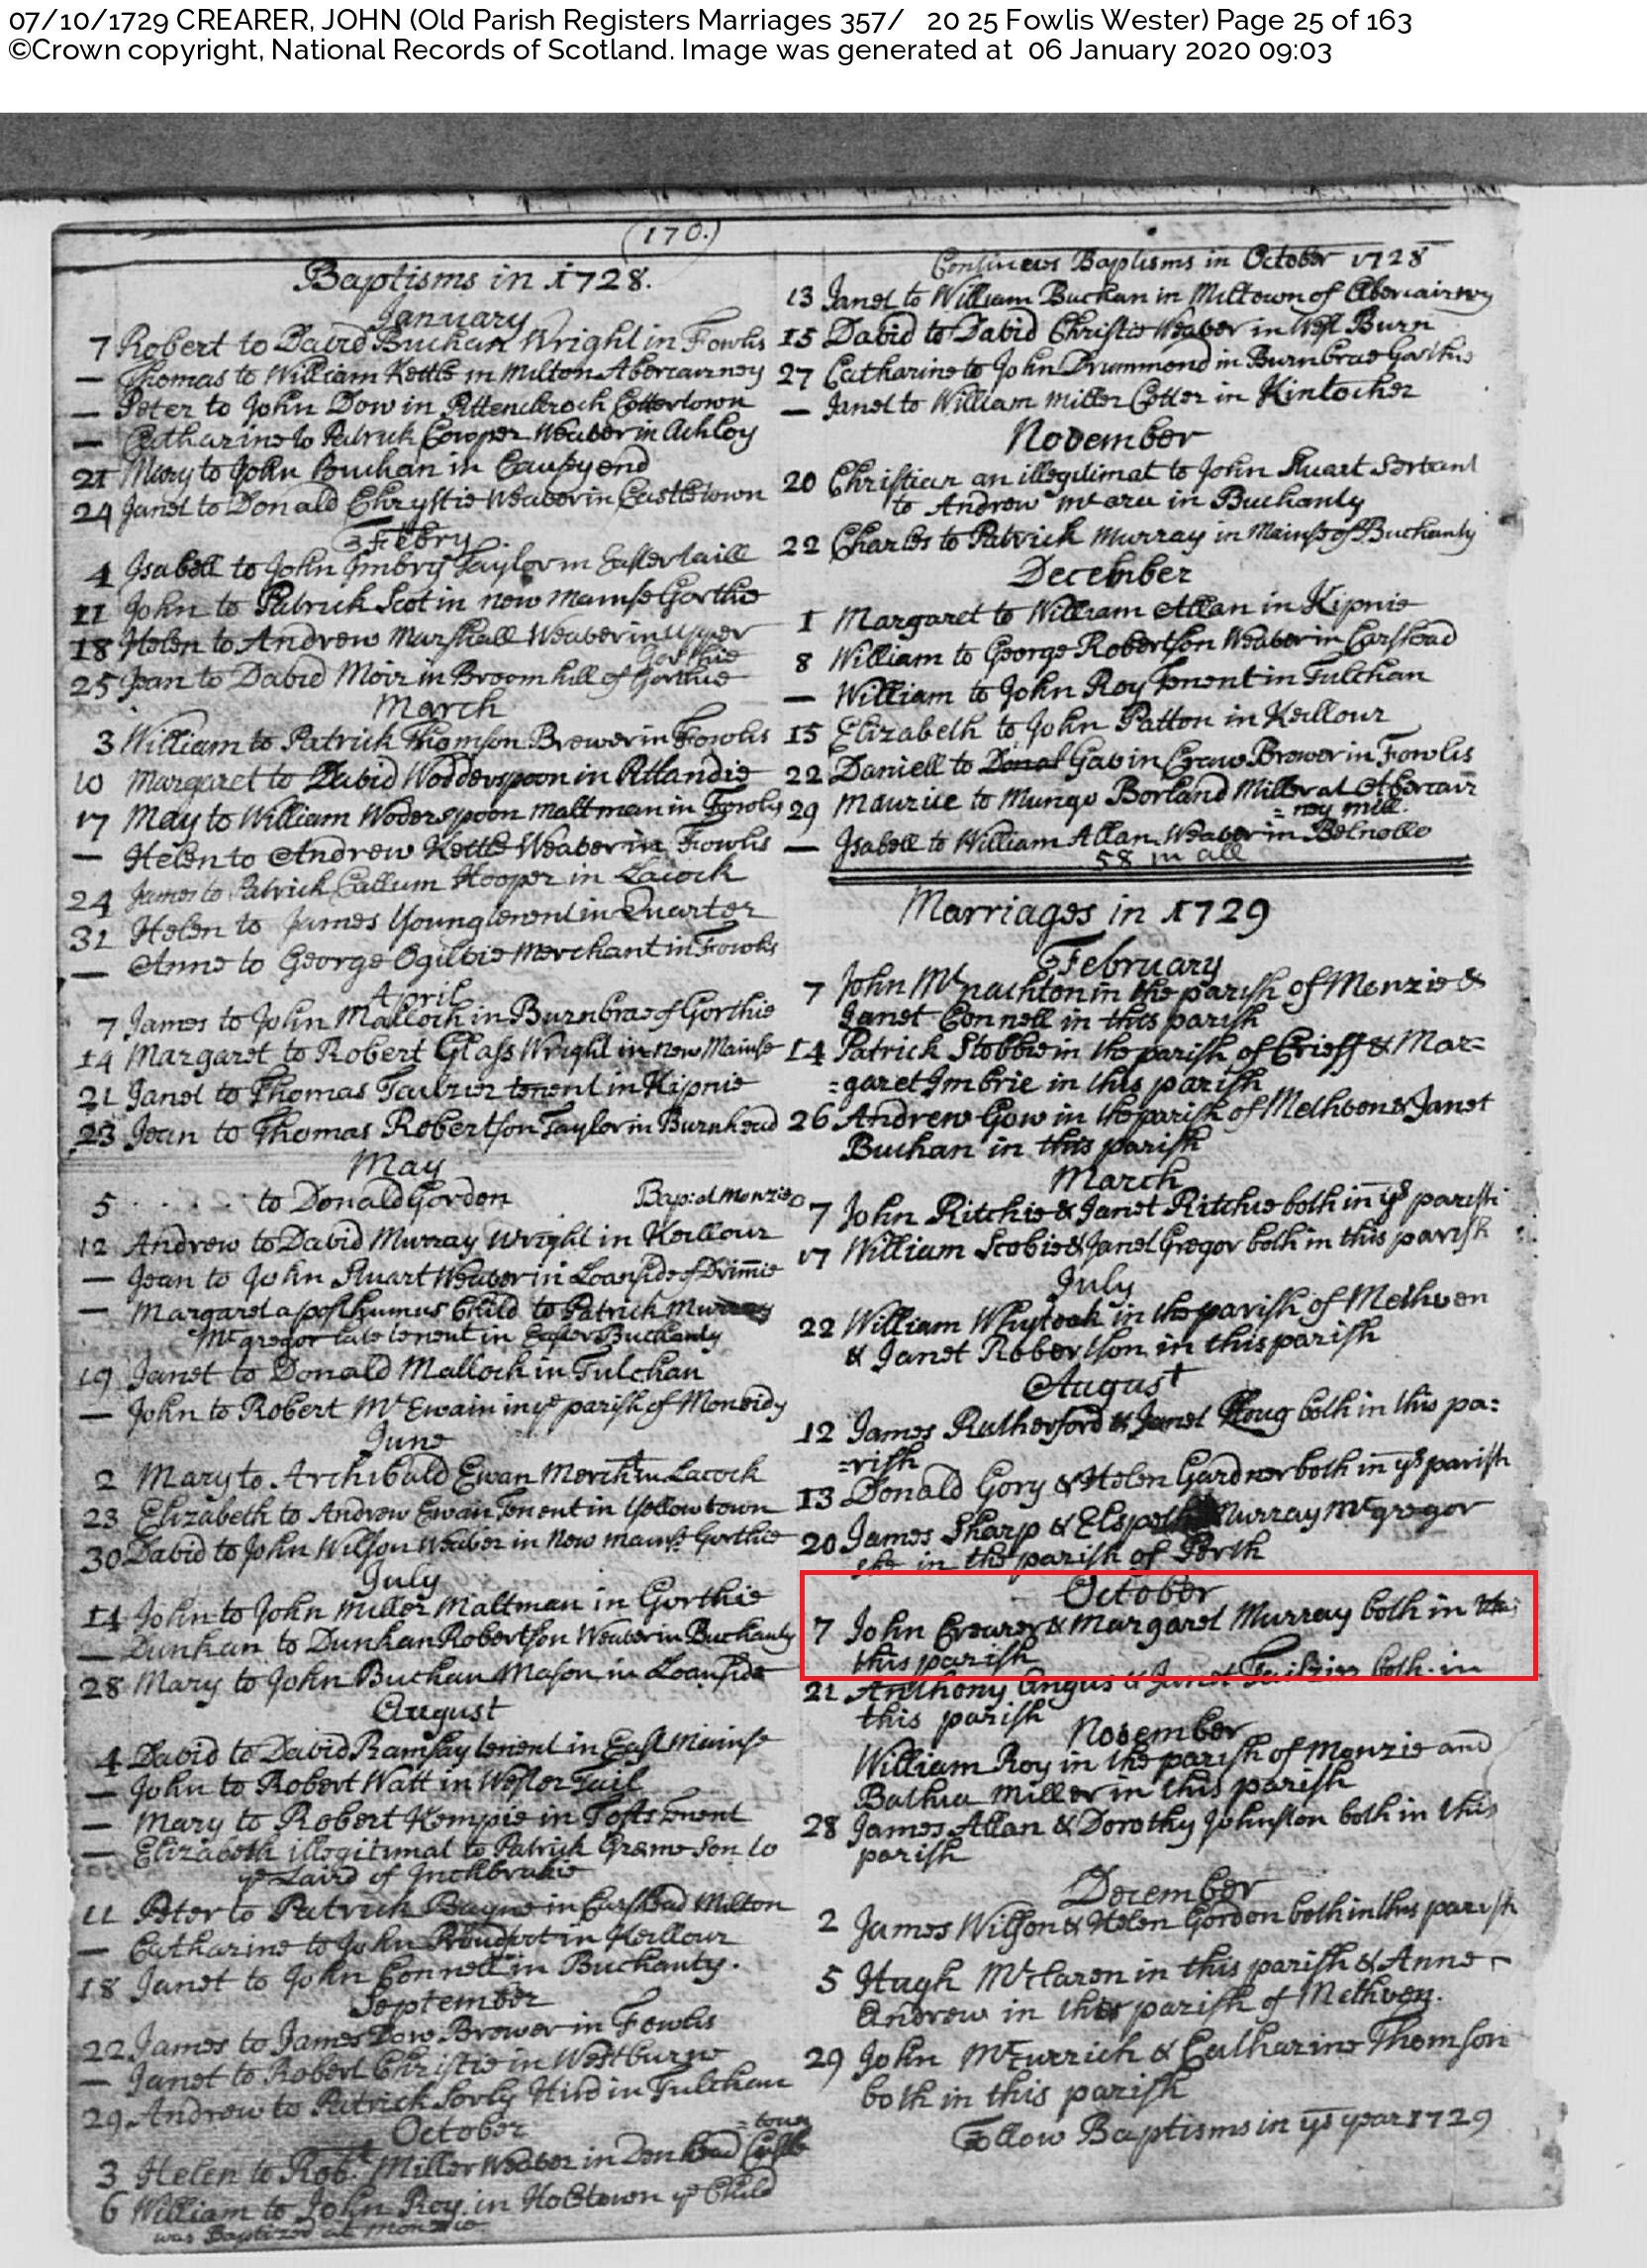 07/10/1729 CREARER, JOHN (Old Parish Registers Marriages 357/ 20 25 Fowlis Wester) Page 25 of 163
©Crown copyright, National Records of Scotland. Image was generated at 06 January 2020 09:03
(170.)
Baptisms in 1728.
January
7 Robert to David Buchan Wright in Fowlis
— Thomas to William Kettle in Milton Abercairney
— Peter to John Dow in Cottertown
— Catharine to Patrick Cowper Weaver in Achloy
21 Mary to John Buchan in Causyend
24 Janet to Donald Chrystie Weaver in Castletown
Febry
4 Isabell to John Imbry Taylor in
11 John to Patrick Scot in new mainse Gorthie
18 Helen to Andrew Marshall Weaver in Upper
Gorthie
25 Jean to David Moir in Broomhill of Gorthie
March
3 William to Patrick Thomson Brewer in Fowlis
10 Margaret to David Wodderspoon in
17 May to William Woderspoon maltman in Fowlis
— Helen to Andrew Kettle Weaver in Fowlis
24 James to Patrick Callum Hooper in Lacock
31 Helen to James Young tenent in Quarter
— Anne to George Ogilvie Merchant in Fowlis
April
7 James to John Malloch in Burnbrae of Gorthie
14 Margaret to Robert Glass Wright in new Mainse
21 Janet to Thomas tenent in Kipnie
23 Jean to Thomas Robertson Taylor in Burnhead
May
5 to Donald Gordon Bap: at Monzie
12 Andrew to David Murray Wright in Keillour
— Jean to John Stuart Weaver in Loanside of Drimie
— Margaret a posthumus Child to Patrick
McGregor late tenent in Easter Buchanty
19 Janet to Donald Malloch in Tulchan
— John to Robert Mc Ewain in ye parish of Moneidy
June
2 Mary to Archibald Ewan Mercht in Lacock
23 Elizabeth to Andrew Ewan Tenent in Yellowtown
30 David to John Wilson Weaver in New mainse Gorthie
July
14 John to John Miller Maltman in Gorthie
— Dunkan to Dunkan Robertson Weaver in Buchanty
28 Mary to John Buchan Mason in Loanside
August
4 David to David Ramsay tenent in East Mainse
— John to Robert Watt in Wester Tail
— Mary to Robert Kempie in Tofts Tenent
— Elizabeth illegitimat to Patrick Greme Son to
ye Laird of Inchbrakie
11 Peter to Patrick Bayne in Carshead Milton
— Catharine to John in Keillour
18 Janet to John Connell in Buchanty.
September
22 James to James Dow Brewer in Fowlis
— Janet to Robert Christie in Westburn
29 Andrew to Patrick Sorly Hird in Tulchan
October
=town
3 Helen to Robt Miller Weaver in Castle
6 William to John Roy in ye Child
was Baptized at Monzie
Continews Baptisms in October 1728
13 Janet to William Buchan in Miltown of Abercairney
15 David to David Christie Weaver in West Burn
27 Catharine to John Drummond in Burnbrae Gorthie
— Janet to William Miller Cotter in Kintocher
November
20 Christian an illegitimat to John Stuart Servant
to Andrew in Buchanty
22 Charles to Patrick Murray in Mainse of Buchanty
December
1 Margaret to William Allan in Kipnie
8 William to George Robertson Weaver in Carshead
— William to John Roy Tenent in Tulchan
15 Elizabeth to John Patton in Keillour
22 Daniell to Donal Gavin Craw Brewer in Fowlis
29 Maurice to Mungo Borland Miller at Abercair
=ney mill.
— Isabell to William Allan Weaver in Belnollo
58 in all
Marriages in 1729
February
7 John Mcnachton in the parish of Monzie &
Janet Connell in this parish
14 Patrick Stobbie in the parish of Crieff & Mar=
=garet Imbrie in this parish
26 Andrew Gow in the parish of Methven & Janet
Buchan in this parish
March
7 John Ritchie & Janet Ritchie both in ys parish
17 William Scobie & Janet Gregor both in this parish
July
22 William Whytock in the parish of Methven
& Janet Robertson in this parish
August
12 James Rutherford & Janet Houg both in this pa=
=rish
13 Donald Gory & Helen Gardner both in ys parish
20 James Sharp & Elspeth Murray McGregor
she in the parish of Perth
October
7 John Crearer & Margaret Murray both in this
this parish
21 Anthony Angus & Janet both in
this parish
November
William Roy in the parish of Monzie and
Bathia Miller in this parish
28 James Allan & Dorothy Johnston both in this
parish
December
2 James Wilson & Helen Gordon both in this parish
5 Hugh McLaren in this parish & Anne
Andrew in the parish of Methven.
29 John & Catharine Thomson
both in this parish
Follow Baptisms in ys year 1729